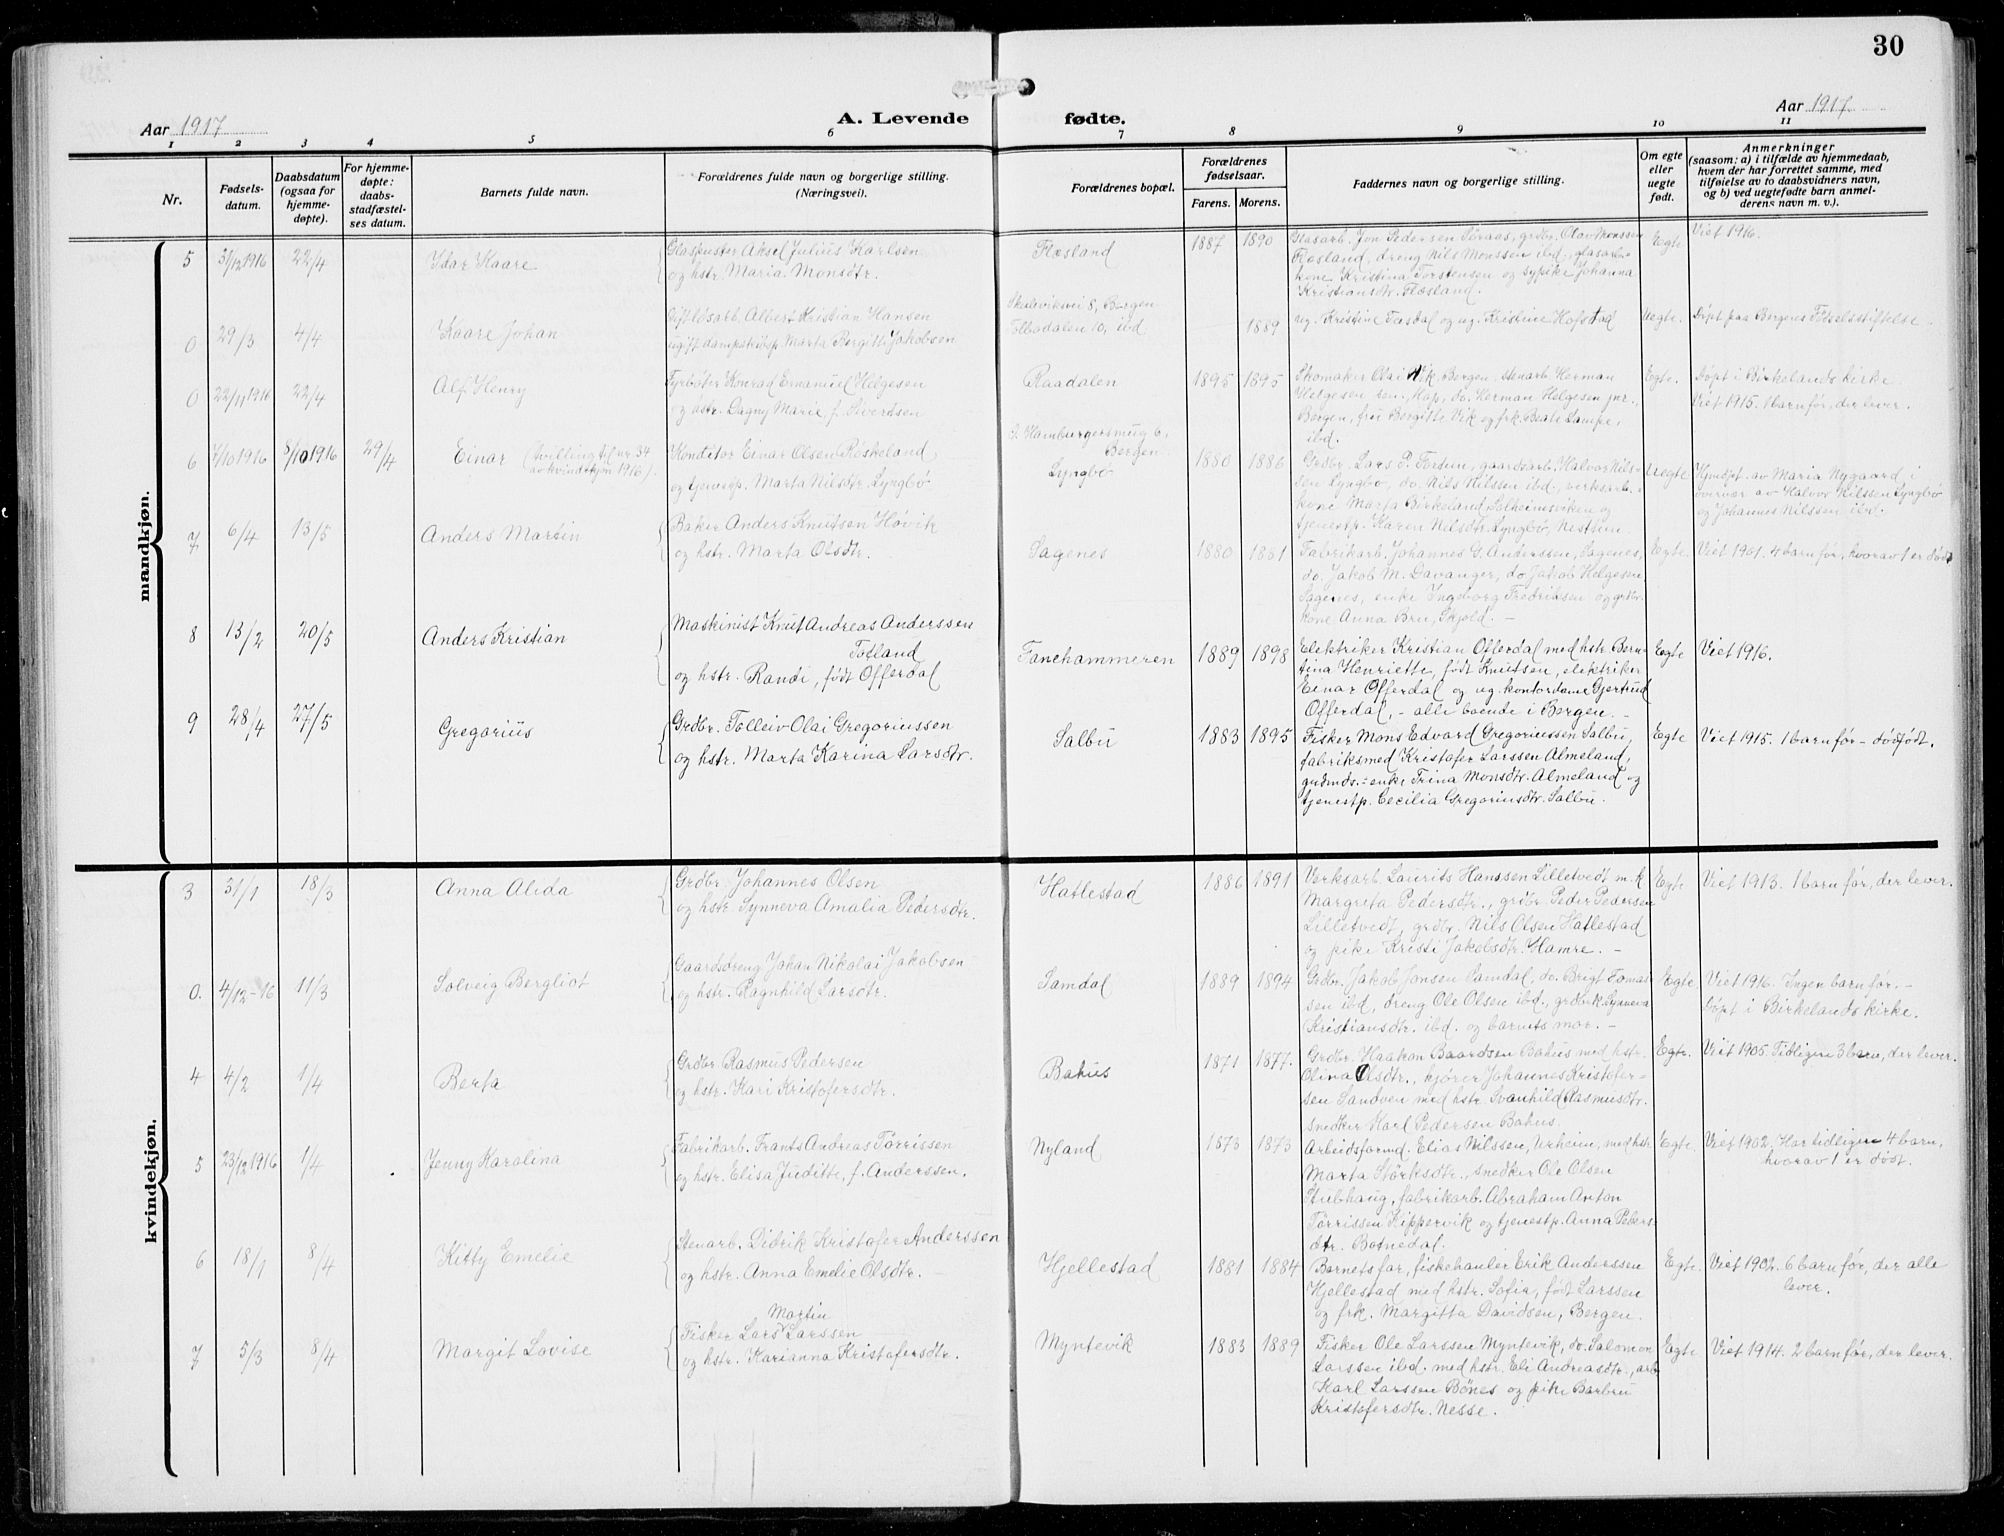 30
Aar 1917
A. Levende fødte.
Aar 1917
1 2 3 4 5 6 7 8 9 10 11
Nr.
Fødsels-
datum.
Daabsdatum
(ogsaa for
hjemme-
døpte).
For hjemme-
døpte:
daabs-
stadfæstel-
ses datum.
Barnets fulde navn.
Forældrenes fulde navn og borgerlige stilling.
(Næringsvei).
Forældrenes bopæl.
Forældrenes
fødselsaar.
Farens. Morens.
Faddernes navn og borgerlige stilling.
Om egte
eller
uegte
født.
Anmerkninger
(saasom: a) i tilfælde av hjemmedaab,
hvem der har forrettet samme, med
tilføielse av to daabsvidners navn,
og b) ved uegtefødte barn anmel-
derens navn m. v.).
mandkjøn.
5 3/12 1916 22/4 Idar Kaare
Glaspuster Aksel Julius Karlsen
og hstr. Maria Monsdtr.
Flesland 1887 1890
Glasarb. Jon Pedersen Søraas, grdbr. Olav Monssen
Flesland, dreng Nils Monssen ibd., glasarb-
kone Kristina Torstensen og sypike Johanna
Kristiansdtr. Flesland.
Egte Viet 1916.
0 29/3 4/4 Kaare Johan
Albert Kristian Hansen
ugift Marta Bergitte Jakobsen
Skutevikvei 8, Bergen
10, ibd 1889
ug. Kristine Tasdal og ug. Kristine Hofstad
Uegte. Døpt paa Bergens Fødselsstiftelse.
0 22/11 1916 22/4 Alf Henry
Fyrbøter Konrad Emanuel Helgesen
og hstr. Dagny Marie f. Sivertsen
Raadalen 1895 1895
Skomaker Olai Vik, Bergen, stenarb. Herman
Helgesen sen., Hop, do. Herman Helgesen jnr.,
Bergen, fru Bergitte Vik og frk. Beate Lampe,
ibd.
Egte. Døpt i Birkelands kirke.
Viet 1915. 1 barn før, der lever.
6 7/10 1916 8/10 1916 29/4 Einar (tvilling til nr. 34
av kvindekjøn 1916).
Konditor Einar Olsen Røskeland
og tjenestp. Marta Nilsdtr. Lyngbø
Hamburgersmug 6,
Bergen
Lyngbø 1880 1886
Grdbr. Lars P. Fortun, gaardsarb. Halvor Nils-
sen Lyngbø, do. Nils Nilssen ibd, verksarb.-
kone Marta Birkeland, Solheimsviken og
tjenestp. Karen Nilsdtr. Lyngbø, Nesttun.
Uegte Hjmdøpt av Maria Nygaard i
overvær av Halvor Nilssen Lyngbø
og Johannes Nilssen ibd.
7 6/4 13/5 Anders Martin
Baker Anders Knutsen Høvik
og hstr. Marta Olsdtr.
Sagenes 1880 1881
Fabrikarb. Johannes G. Anderssen, Sagenes,
do. Jakob M. Davanger, do. Jakob Helgesen
Sagenes, enke Ingeborg Fredriksen og grdbr.
kone Anna Bru, Skjold. –
Egte. Viet 1901. 4 barn før, hvorav 1 er død.
8 13/2 20/5 Anders Kristian
Maskinist Knut Andreas Anderssen
Totland
og hstr. Randi, født Offerdal
Fanehammeren 1889 1898
Elektriker Kristian Offerdal med hstr. Bern-
tina Henriette, født Knutsen, elektriker
Einar Offerdal og ug. kontordame Gjertrud
Offerdal, – alle boende i Bergen. –
Egte Viet 1916.
9 28/4 27/5 Gregorius
Grdbr. Tolleiv Olai Gregoriussen
og hstr. Marta Karina Larsdtr.
Salbu 1883 1895
Fisker Mons Edvard Gregoriussen Salbu,
fabriksmed Kristofer Larssen Almeland,
grdmds.-enke Trina Monsdtr. Almeland og
tjenestp. Cecilia Gregoriusdtr. Salbu.
Egte Viet 1915. 1 barn før – dødfødt.
kvindekjøn.
3 31/1 18/3 Anna Alida
Grdbr. Johannes Olsen
og hstr. Synneva Amalia Pedersdtr.
Hatlestad 1886 1891
Verksarb. Laurits Hanssen Lilletvedt m. k
Margreta Pedersdtr., grdbr. Peder Pedersen
Lilletvedt, grdbr. Nils Olsen Hatlestad
og pike Kristi Jakobsdtr. Hamre. –
Egte Viet 1913. 1 barn før, der lever.
0. 4/12-16 11/3 Solveig Bergliot
Gaardsdreng Johan Nikolai Jakobsen
og hstr. Ragnhild Larsdtr.
Samdal 1889 1894
Grdbr. Jakob Jansen Samdal, do. Brigt Tomas-
sen ibd, dreng Ole Olsen ibd., grdbrk Synneva
Kristiansdtr. ibd. og barnets mor. –
Egte. Viet 1916. Ingen barn før. –
Døpt i Birkelands kirke.
4 4/2 1/4 Berta
Grdbr Rasmus Pedersen
og hstr. Kari Kristofersdtr.
Bahus 1871 1877.
Grdbr. Haakon Baardsen Bahus med hstr.
Olina Olsdtr., kjører Johannes Kristofer-
sen Sandven med hstr. Svanhild Rasmusdtr.
snedker Karl Pedersen Bahus.
Egte. Viet 1905. Tidligere 3 barn, der lever.
5 23/12 1916 1/4 Jenny Karolina
Fabrikarb. Frants Andreas Tørrissen
og hstr. Elisa Juditte, f. Anderssen.
Nyland 1873 1873
Arbeidsformd. Elias Nilssen, Urheim, med hstr.
Marta Størksdtr., snedker Ole Olsen
Stubhaug, fabrikarb. Abraham Anton
Tørrissen Kippervik og tjenestp. Anna Peders-
dtr. Botnedal.
Egte. Viet 1902. Har tidligere 4 barn,
hvorav 1 er dødt.
6 18/1 8/4 Kitty Emelie
Stenarb. Didrik Kristofer Anderssen
og hstr. Anna Emelie Olsdtr. –
Hjellestad 1881 1884
Barnets far, fiskehanler Erik Anderssen
Hjellestad med hstr. Sofia, født Larssen
og frk. Margitta Davidsen, Bergen.
Egte. Viet 1902. 6 barn før, der alle
lever.
7 5/3 8/4 Margit Lovise
Martin
Fisker Lars Larssen
og hstr. Karianna Kristofersdtr.
Myntevik 1883 1889
Fisker Ole Larssen Myntevik, do. Salomon
Larssen ibd. med hstr. Eli Andreasdtr., arb
Karl Larssen Bønes og pike Barbru
Kristofersdtr. Nesse.
Egte Viet 1914. 2 barn før, der lever.